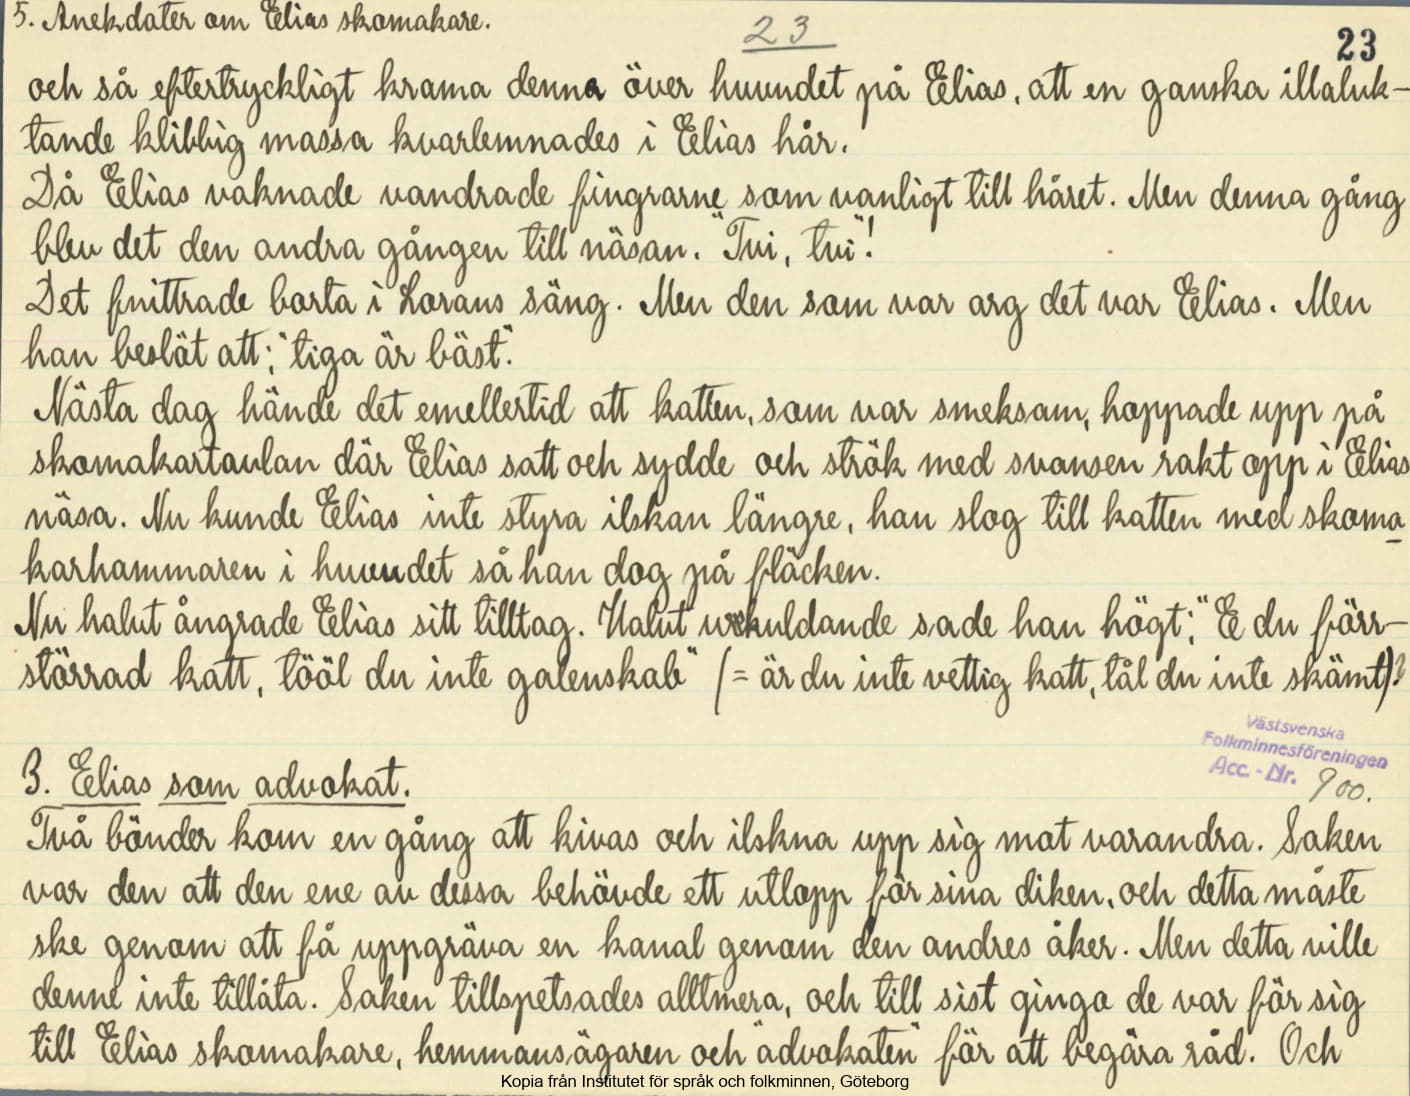 5. Anekdoter om Elias skomakare.
23
23
och så eftertryckligt krama denna över huvudet på Elias, att en ganska illaluk-
tande klibbig massa kvarlemnades i Elias hår.
Då Elias vaknade vandrade fingrarne som vanligt till håret. Men denna gång
blev det den andra gången till näsan. "Tvi, tvi"!
Det fnittrade borta i Lorans säng. Men den som var arg det var Elias. Men
han beslöt att; "tiga är bäst".
Nästa dag hände det emellertid att katten, som var smeksam, hoppade upp på
skomakartavlan där Elias satt och sydde och strök med svansen rakt opp i Elias
näsa. Nu kunde Elias inte styra ilskan längre, han slog till katten med skoma
karhammaren i huvudet så han dog på fläcken.
Nu halvt ångrade Elias sitt tilltag. Halvt urskuldande sade han högt; "E du förr-
störrad katt, tööl du inte galenskab" (= är du inte vettig katt, tål du inte skämt)?
Västsvenska
Folkminnesföreningen
Acc. - Nr. 900.
3. Elias som advokat.
Två bönder kom en gång att kivas och ilskna upp sig mot varandra. Saken
var den att den ene av dessa behövde ett utlopp för sina diken, och detta måste
ske genom att få uppgräva en kanal genom den andres åker. Men detta ville
denne inte tillåta. Saken tillspetsades alltmera, och till sist gingo de var för sig
till Elias skomakare, hemmansägaren och "advokaten" för att begära råd. Och
Kopia från Institutet för språk och folkminnen, Göteborg